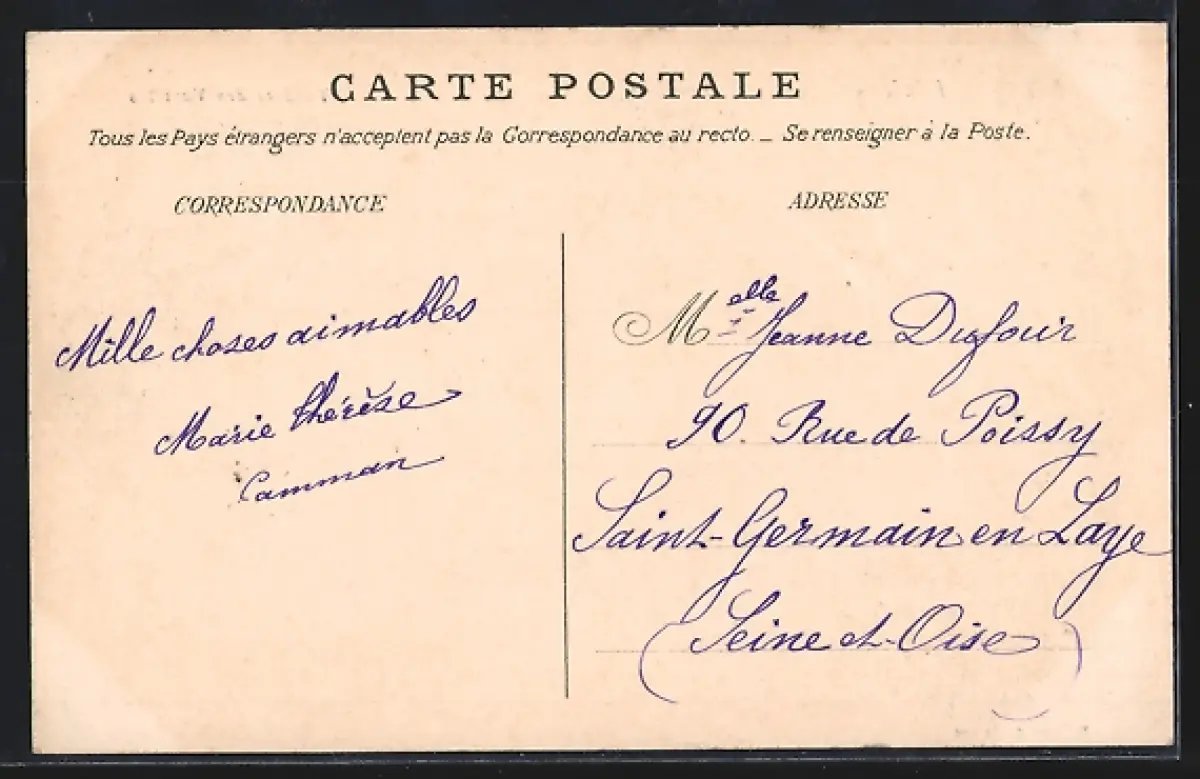 CARTE POSTALE
Tous les Pays étrangers n'acceptent pas la Correspondance au recto. _ Se renseigner à la Poste.
CORRESPONDANCE
ADRESSE
Mille choses aimables
Marie thérèse
Camman
Melle Jeanne Dufour
90. Rue de Poissy
Saint-Germain en Laye
(Seine et-Oise)